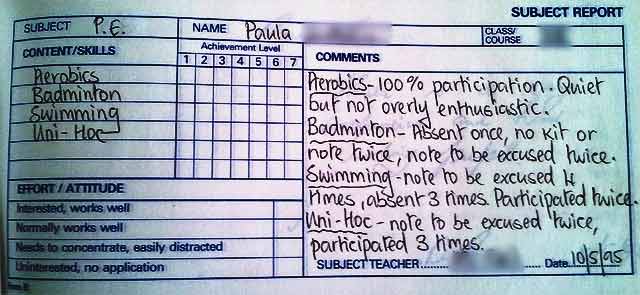 SUBJECT REPORT
SUBJECT P.E. NAME Paula CLASS/ COURSE
CONTENT/SKILLS
Achievement Level
1 2 3 4 5 6 7
Aerobics
Badminton
Swimming
Uni-Hoc
EFFORT / ATTITUDE
Interested, works well
Normally works well
Needs to concentrate, easily distracted
Uninterested, no application
COMMENTS
Aerobics - 100% participation. Quiet
but not overly enthusiastic.
Badminton - Absent once, no kit or
note twice, note to be excused twice.
Swimming - note to be excused 4
times, absent 3 times. Participated twice.
Uni-Hoc - note to be excused twice,
participated 3 times.
SUBJECT TEACHER........ Date 10/5/95